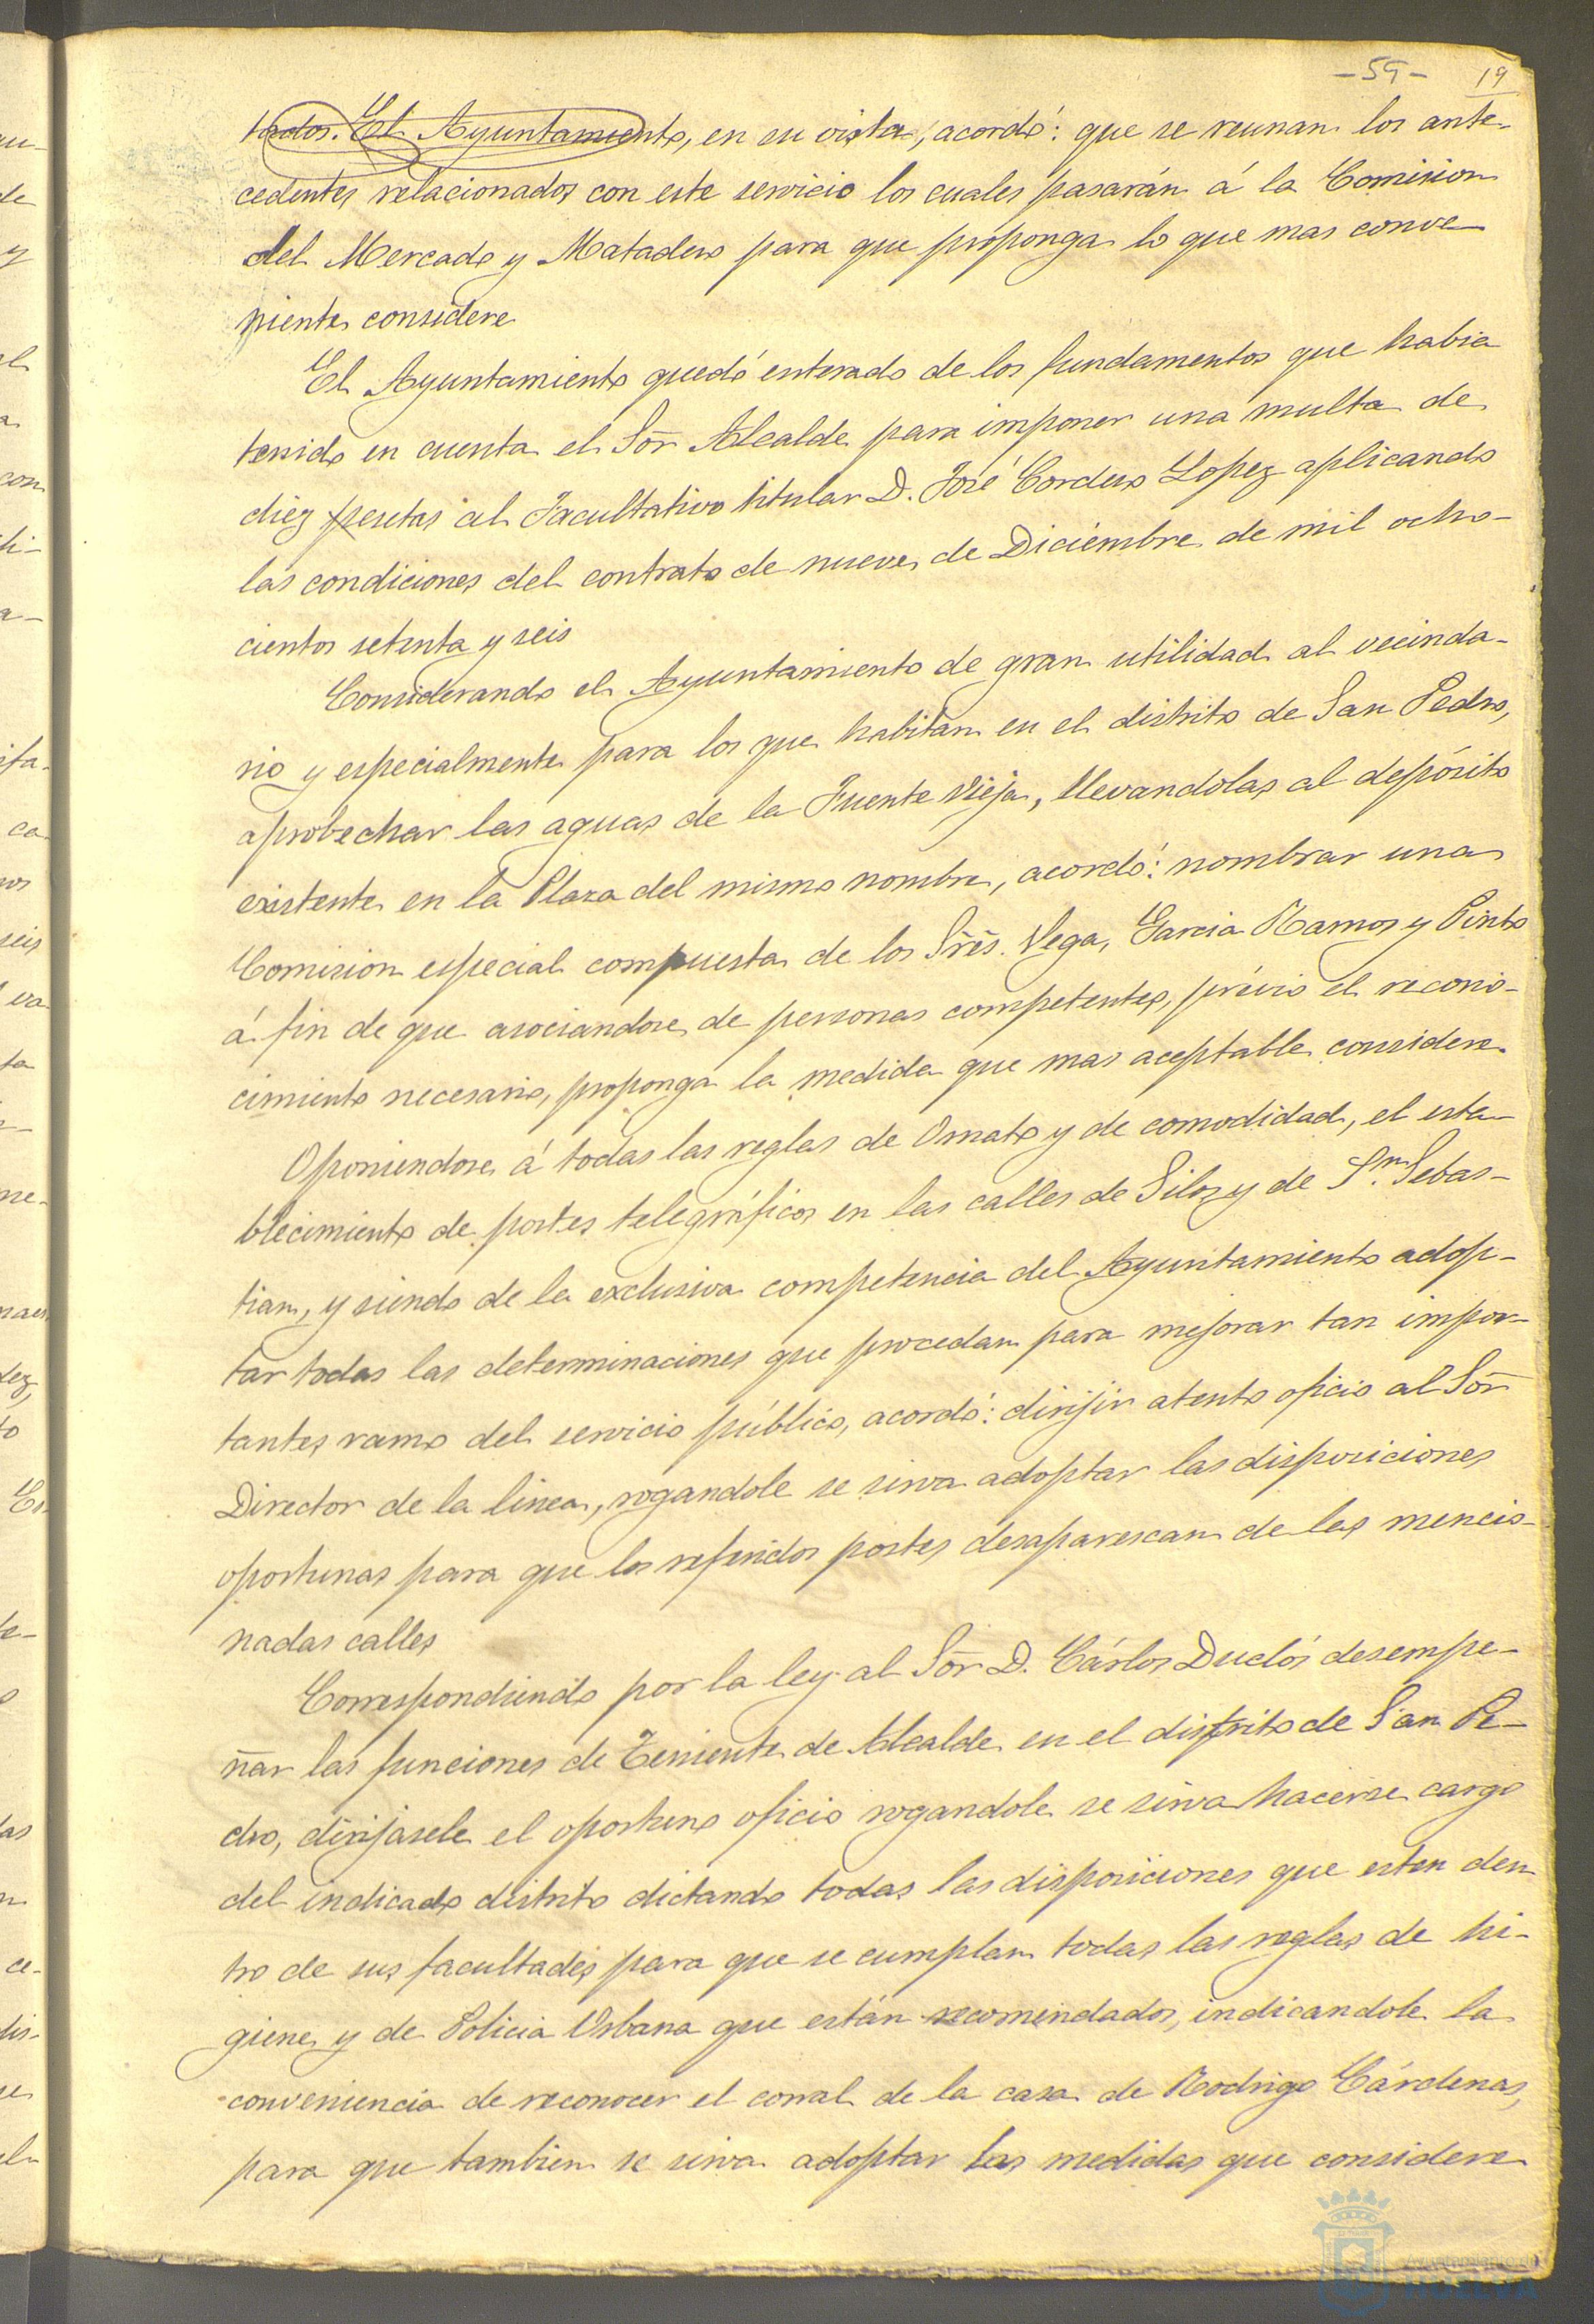 -59- 19
tados. El Ayuntamiento, en su vista, acordó: que se reunan los ante-
cedentes relacionados con este servicio los cuales pasarán á la Comision
del Mercado y Matadero para que proponga lo que mas conve-
niente considere
El Ayuntamiento quedó enterado de los fundamentos que habia
tenido en cuenta el Sor Alcalde para imponer una multa de
diez pesetas al Facultativo titular D. José Cordero Lopez aplicando
las condiciones del contrato de nueve de Diciembre de mil ocho-
cientos setenta y seis
Considerando el Ayuntamiento de gran utilidad al vecinda-
rio y especialmente para los que habitan en el distrito de San Pedro,
aprobechar las aguas de la Fuente Vieja, llevandolas al depósito
existente en la Plaza del mismo nombre, acordó: nombrar una
Comision especial compuesta de los Sres. Vega, Garcia Ramos y Pinto
á fin de que asociandose de personas competentes, prévio el recono-
cimiento necesario, proponga la medida que mas aceptable considere.
Oponiendose á todas las reglas de Ornato y de comodidad, el esta-
blecimiento de postes telegráficos en las calles de Silos y de Sn. Sebas-
tian, y siendo de la exclusiva competencia del Ayuntamiento adop-
tar todas las determinaciones que procedan para mejorar tan impor-
tantes ramo del servicio público, acordó: dirijir atento oficio al Sor
Director de la linea, rogandole se sirva adoptar las disposiciones
oportunas para que los referidos postes desaparescan de las mencio-
nadas calles
Correspondiendo por la ley al Sor D. Cárlos Duclós desempe-
ñar las funciones de Teniente de Alcalde en el distrito de San Pe-
dro, dirijasele el oportuno oficio rogandole se sirva hacerse cargo
del indicado distrito dictando todas las disposiciones que esten den
tro de sus facultades para que se cumplan todas las reglas de hi-
giene y de Policia Urbana que están recomendados, indicandole la
conveniencia de reconocer el corral de la casa de Rodrigo Cárdenas,
para que tambien se sirva adoptar las medidas que considere
Ayuntamiento de
HUELVA